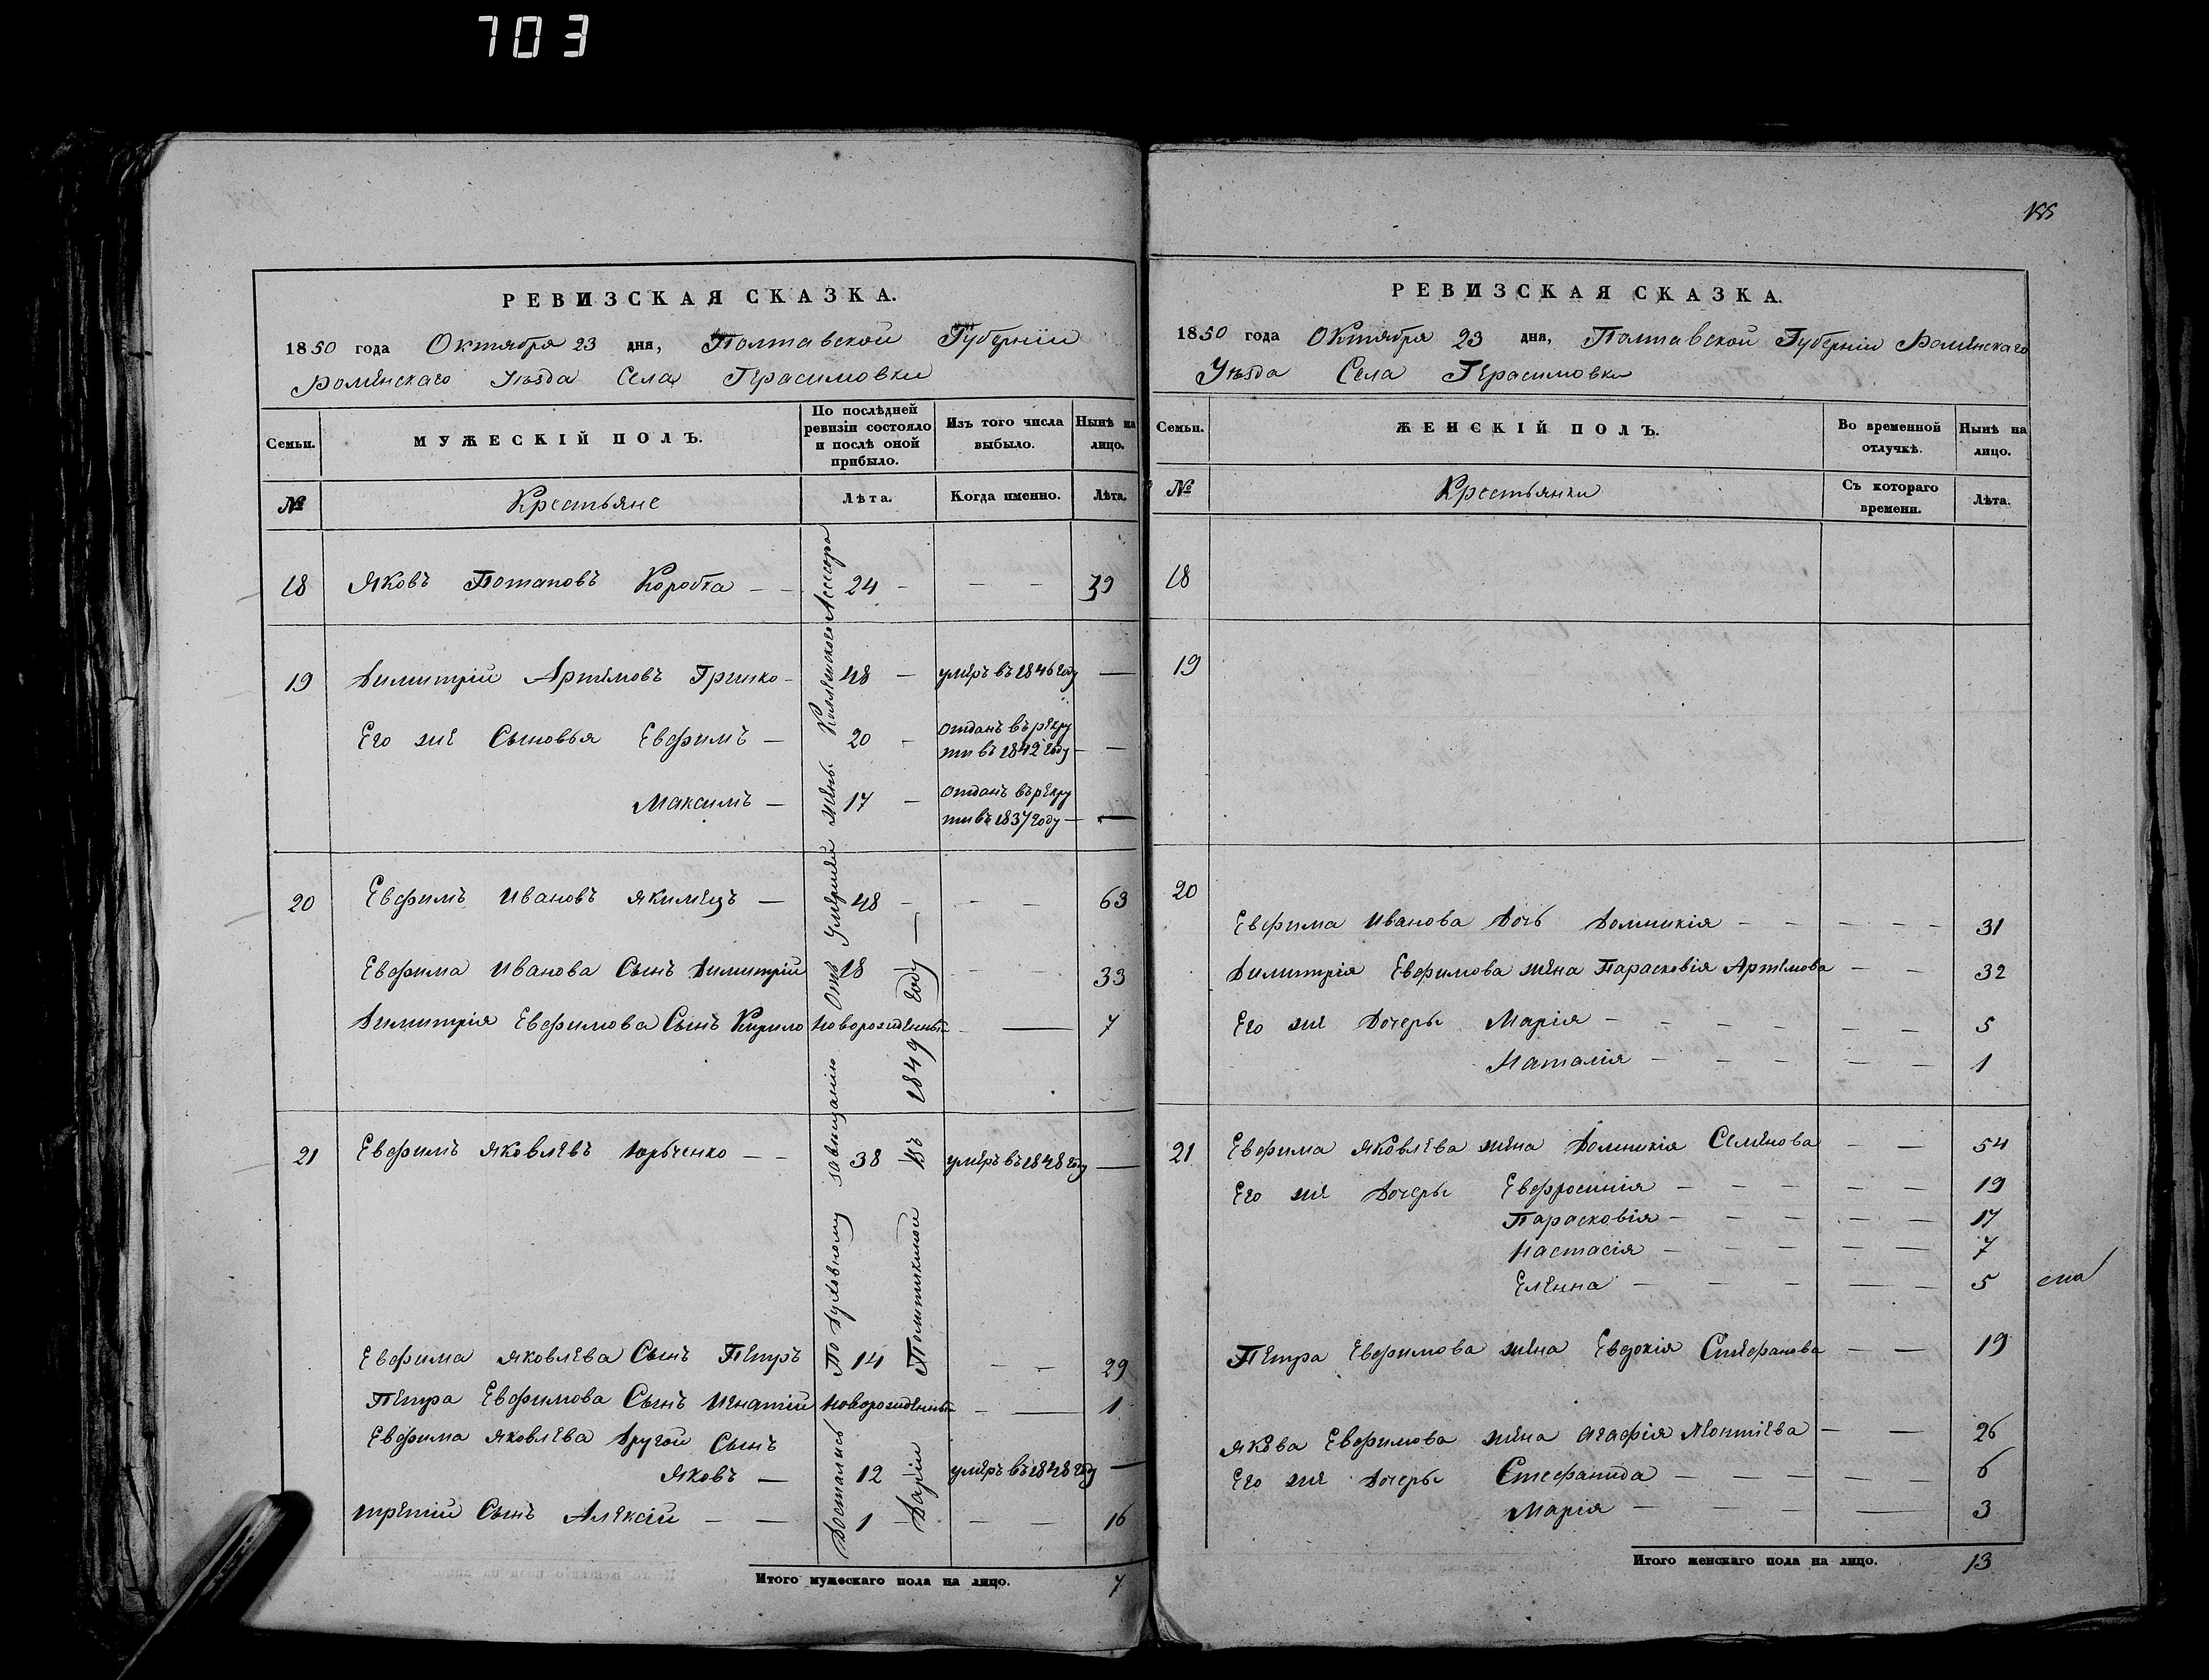 703
РЕВИЗСКАЯ СКАЗКА.
1850 года Октября 23 дня, Полтавской Губерніи
Роменскаго Уѣзда Села Герасимовки
Семьи.
МУЖЕСКІЙ ПОЛЪ.
По послѣдней ревизіи состояло и послѣ оной прибыло.
Изъ того числа выбыло.
Нынѣ на лицо.
№
Крестьяне
Лѣта.
Когда именно.
Лѣта.
18 Яковъ Потаповъ Коробка — — 24 — — — 39
19 Димитрій Артемовъ Гришко — 48 — умеръ въ 1846 году —
Его же Сыновья Евфимъ — 20 — отданъ въ рекру
ти въ 1842 году — —
Максимъ — 17 — отданъ въ рекру
ти въ 1837 году — —
20 Евфимъ Ивановъ Якимецъ — 48 — — — 63
Евфима Иванова Сынъ Димитрій 18 — — 33
Димитрія Евфимова Сынъ Кирило новорожденный — — 7
21 Евфимъ Яковлевъ Юрченко — — 38 — умеръ въ 1848 году —
Евфима Яковлева Сынъ Петръ 14 — — 29
Петра Евфимова Сынъ Игнатій новорожденный — — 1
Евфима Яковлева другой Сынъ
Яковъ — 12 — умеръ въ 1848 году —
третій Сынъ Алексій — — 1 — — — 16
Достались По духовному завѣщанію отъ Умершей жены Колежскаго Асесора
Дарьи Политикиной въ 1849 году —
Итого мужескаго пола на лицо. 7
155
РЕВИЗСКАЯ СКАЗКА.
1850 года Октября 23 дня, Полтавской Губерніи Роменскаго
Уѣзда Села Герасимовки
Семьи.
ЖЕНСКІЙ ПОЛЪ.
Во временной отлучкѣ.
Нынѣ на лицо.
№
Крестьянки
Съ котораго времени.
Лѣта.
18
19
20
Евфима Иванова Дочь Домникія — — — — — 31
Димитрія Евфимова жена Парасковія Артемова — — 32
Его же Дочери Марія — — — — — — 5
Наталія — — — — — 1
21 Евфима Яковлева жена Домникія Семенова — — 54
Его же Дочери Евфросинія — — — — — 19
Парасковія — — — — — 17
Настасія — — — — — 7
Елена — — — — — 5
Петра Евфимова жена Евдокія Стефанова — — 19
Якова Евфимова жена Агафія Леонтіева — — 26
Его же Дочери Стефанида — — — — — 6
Марія — — — — 3
Итого женскаго пола на лицо. 13